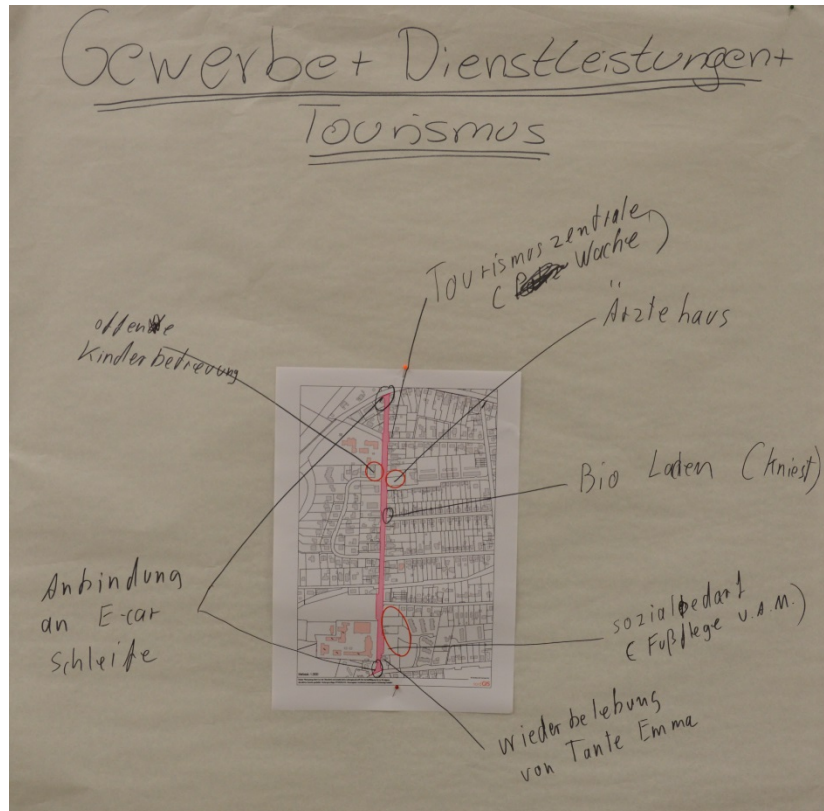 Gewerbe + Dienstleistungen +
Tourismus
Tourismuszentrale
( Wache )
Ärztehaus
offene
Kinderbetreuung
Bio Laden (Kniest)
Anbindung
an E-car
Schleife
sozialbedarf
( Fußpflege u.a.m. )
wiederbelebung
von Tante Emma